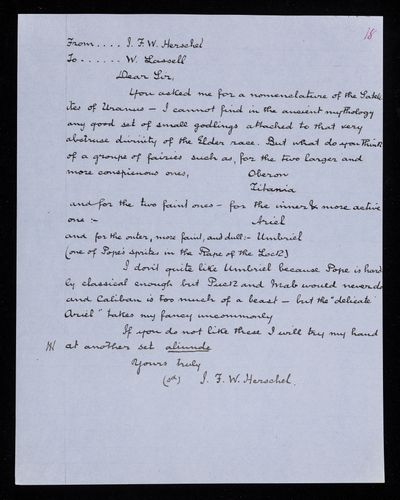 18
From.... J. F. W. Herschel
To....... W. Lassell
Dear Sir,
You asked me for a nomenclature of the Satell-
ites of Uranus — I cannot find in the ancient mythology
any good set of small godlings attached to that very
abstruse divinity of the Elder race. But what do you think
of a groupe of fairies such as, for the two larger and
more conspicuous ones, Oberon
Titania
and for the two faint ones — for the inner & more active
one :- Ariel
and for the outer, more faint, and dull:- Umbriel
(one of Pope's sprites in the Rape of the Lock)
I don't quite like Umbriel because Pope is hard-
ly classical enough but Puck and Mab would never do
and Caliban is too much of a beast — but the "delicate
Ariel" takes my fancy uncommonly
If you do not like these I will try my hand
at another set aliunde
Yours truly
J. F. W. Herschel.